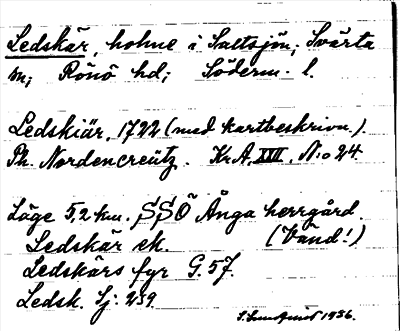 Ledskär, holme i Saltsjön; Svärta
sn; Rönö hd; Söderm. l.
Ledskiär, 1722 (med kartbeskrivn.).
Ph. Nordencreütz. Kr.A, XVI, N:o 24.
Läge 5,2 km. SSÖ Ånga herrgård.
Ledskär ek. (Vänd!)
Ledskärs fyr G. 57.
Ledsk. Sj. 259.
1936.